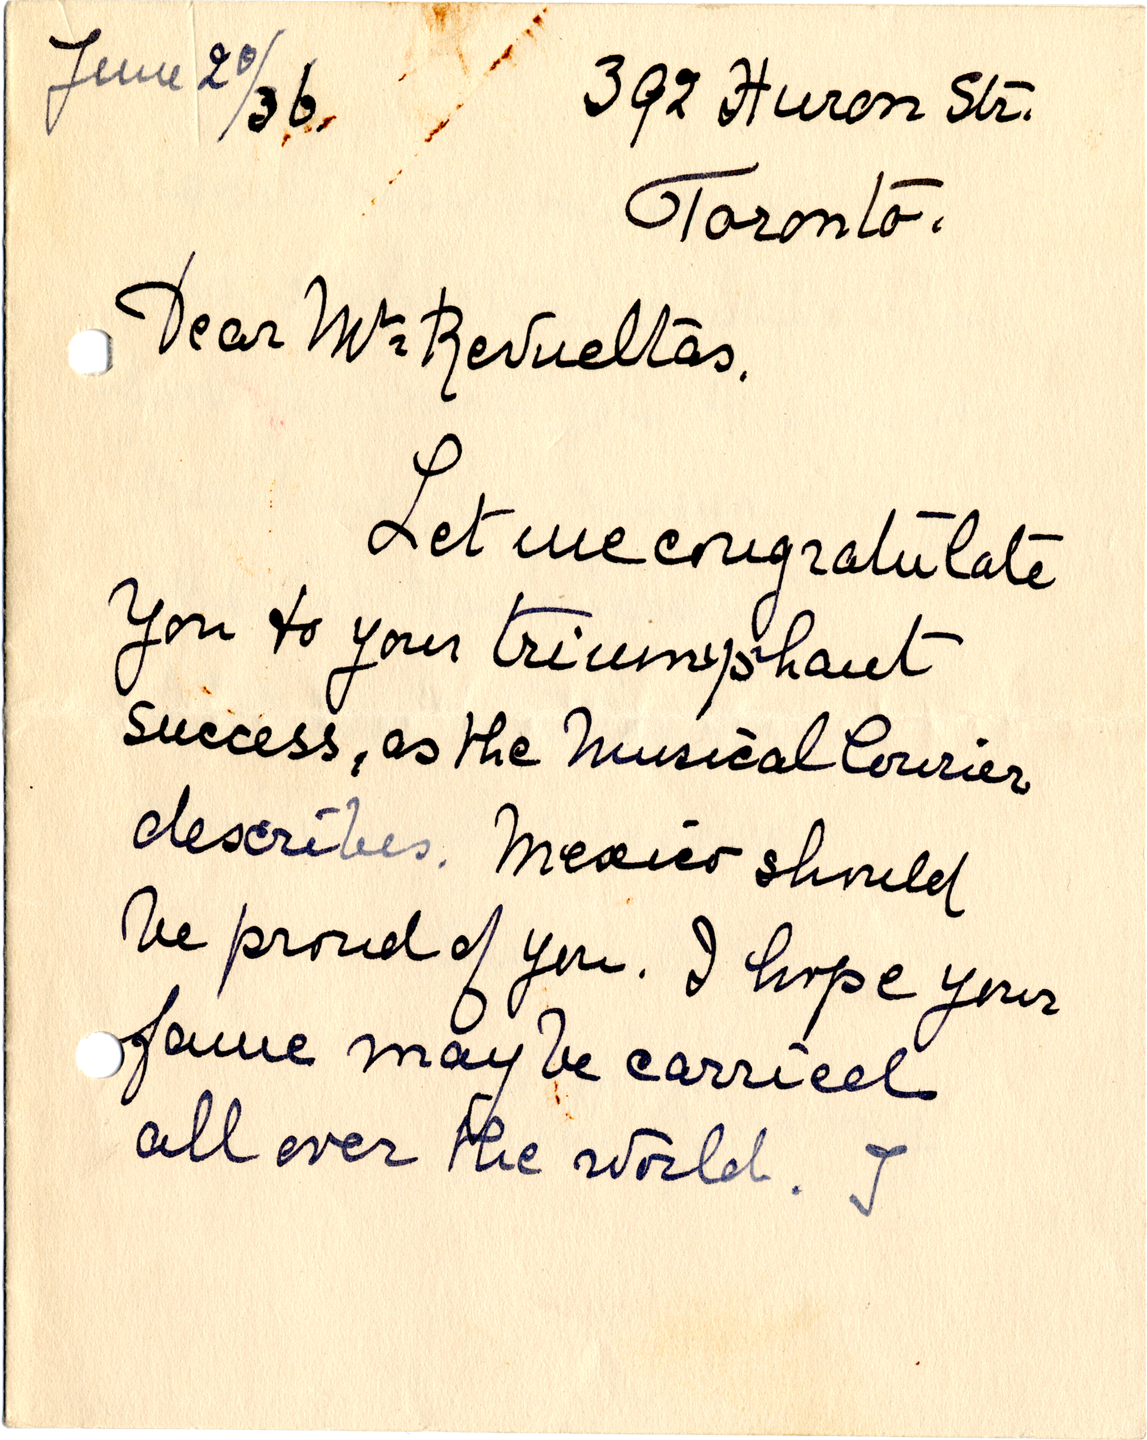 June 20/36.
392 Huron Str.
Toronto.
Dear Mr Revueltas.
Let me congratulate
you to your triumphant
success, as the Musical Courier
describes. Mexico should
be proud of you. I hope your
fame may be carried
all over the world. I